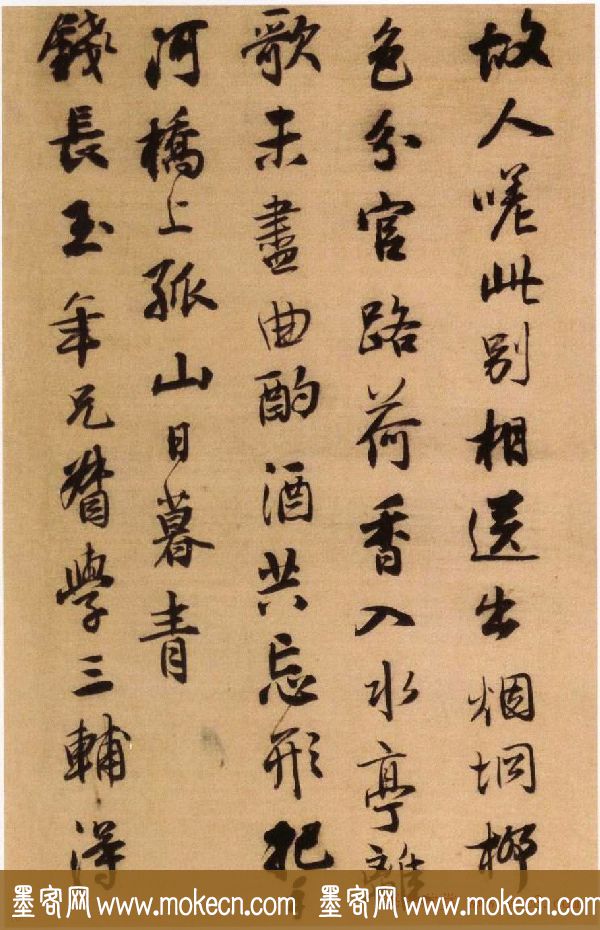 故人嗟此别相送出烟坰柳
色分官路荷香入水亭離
歌未盡曲酌酒共忘形把手
河橋上孤山日暮青
錢長玉年兄督學三輔得
墨客网 www.mokecn.com 墨客网 www.mokecn.com